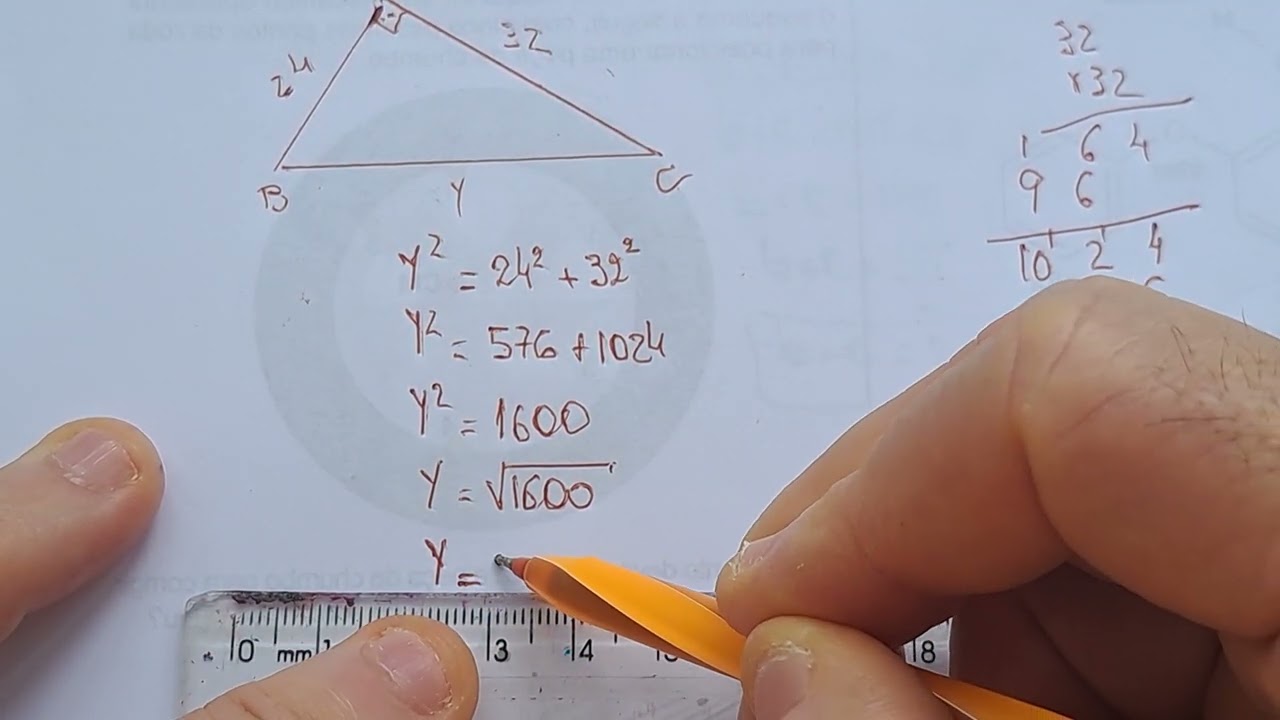 32
24
B
C
Y
Y² = 24² + 32²
Y² = 576 + 1024
Y² = 1600
Y = √1600
Y =
32
x32
1 6 4
9 6
10 2 4
0 mm 1 3 4 8